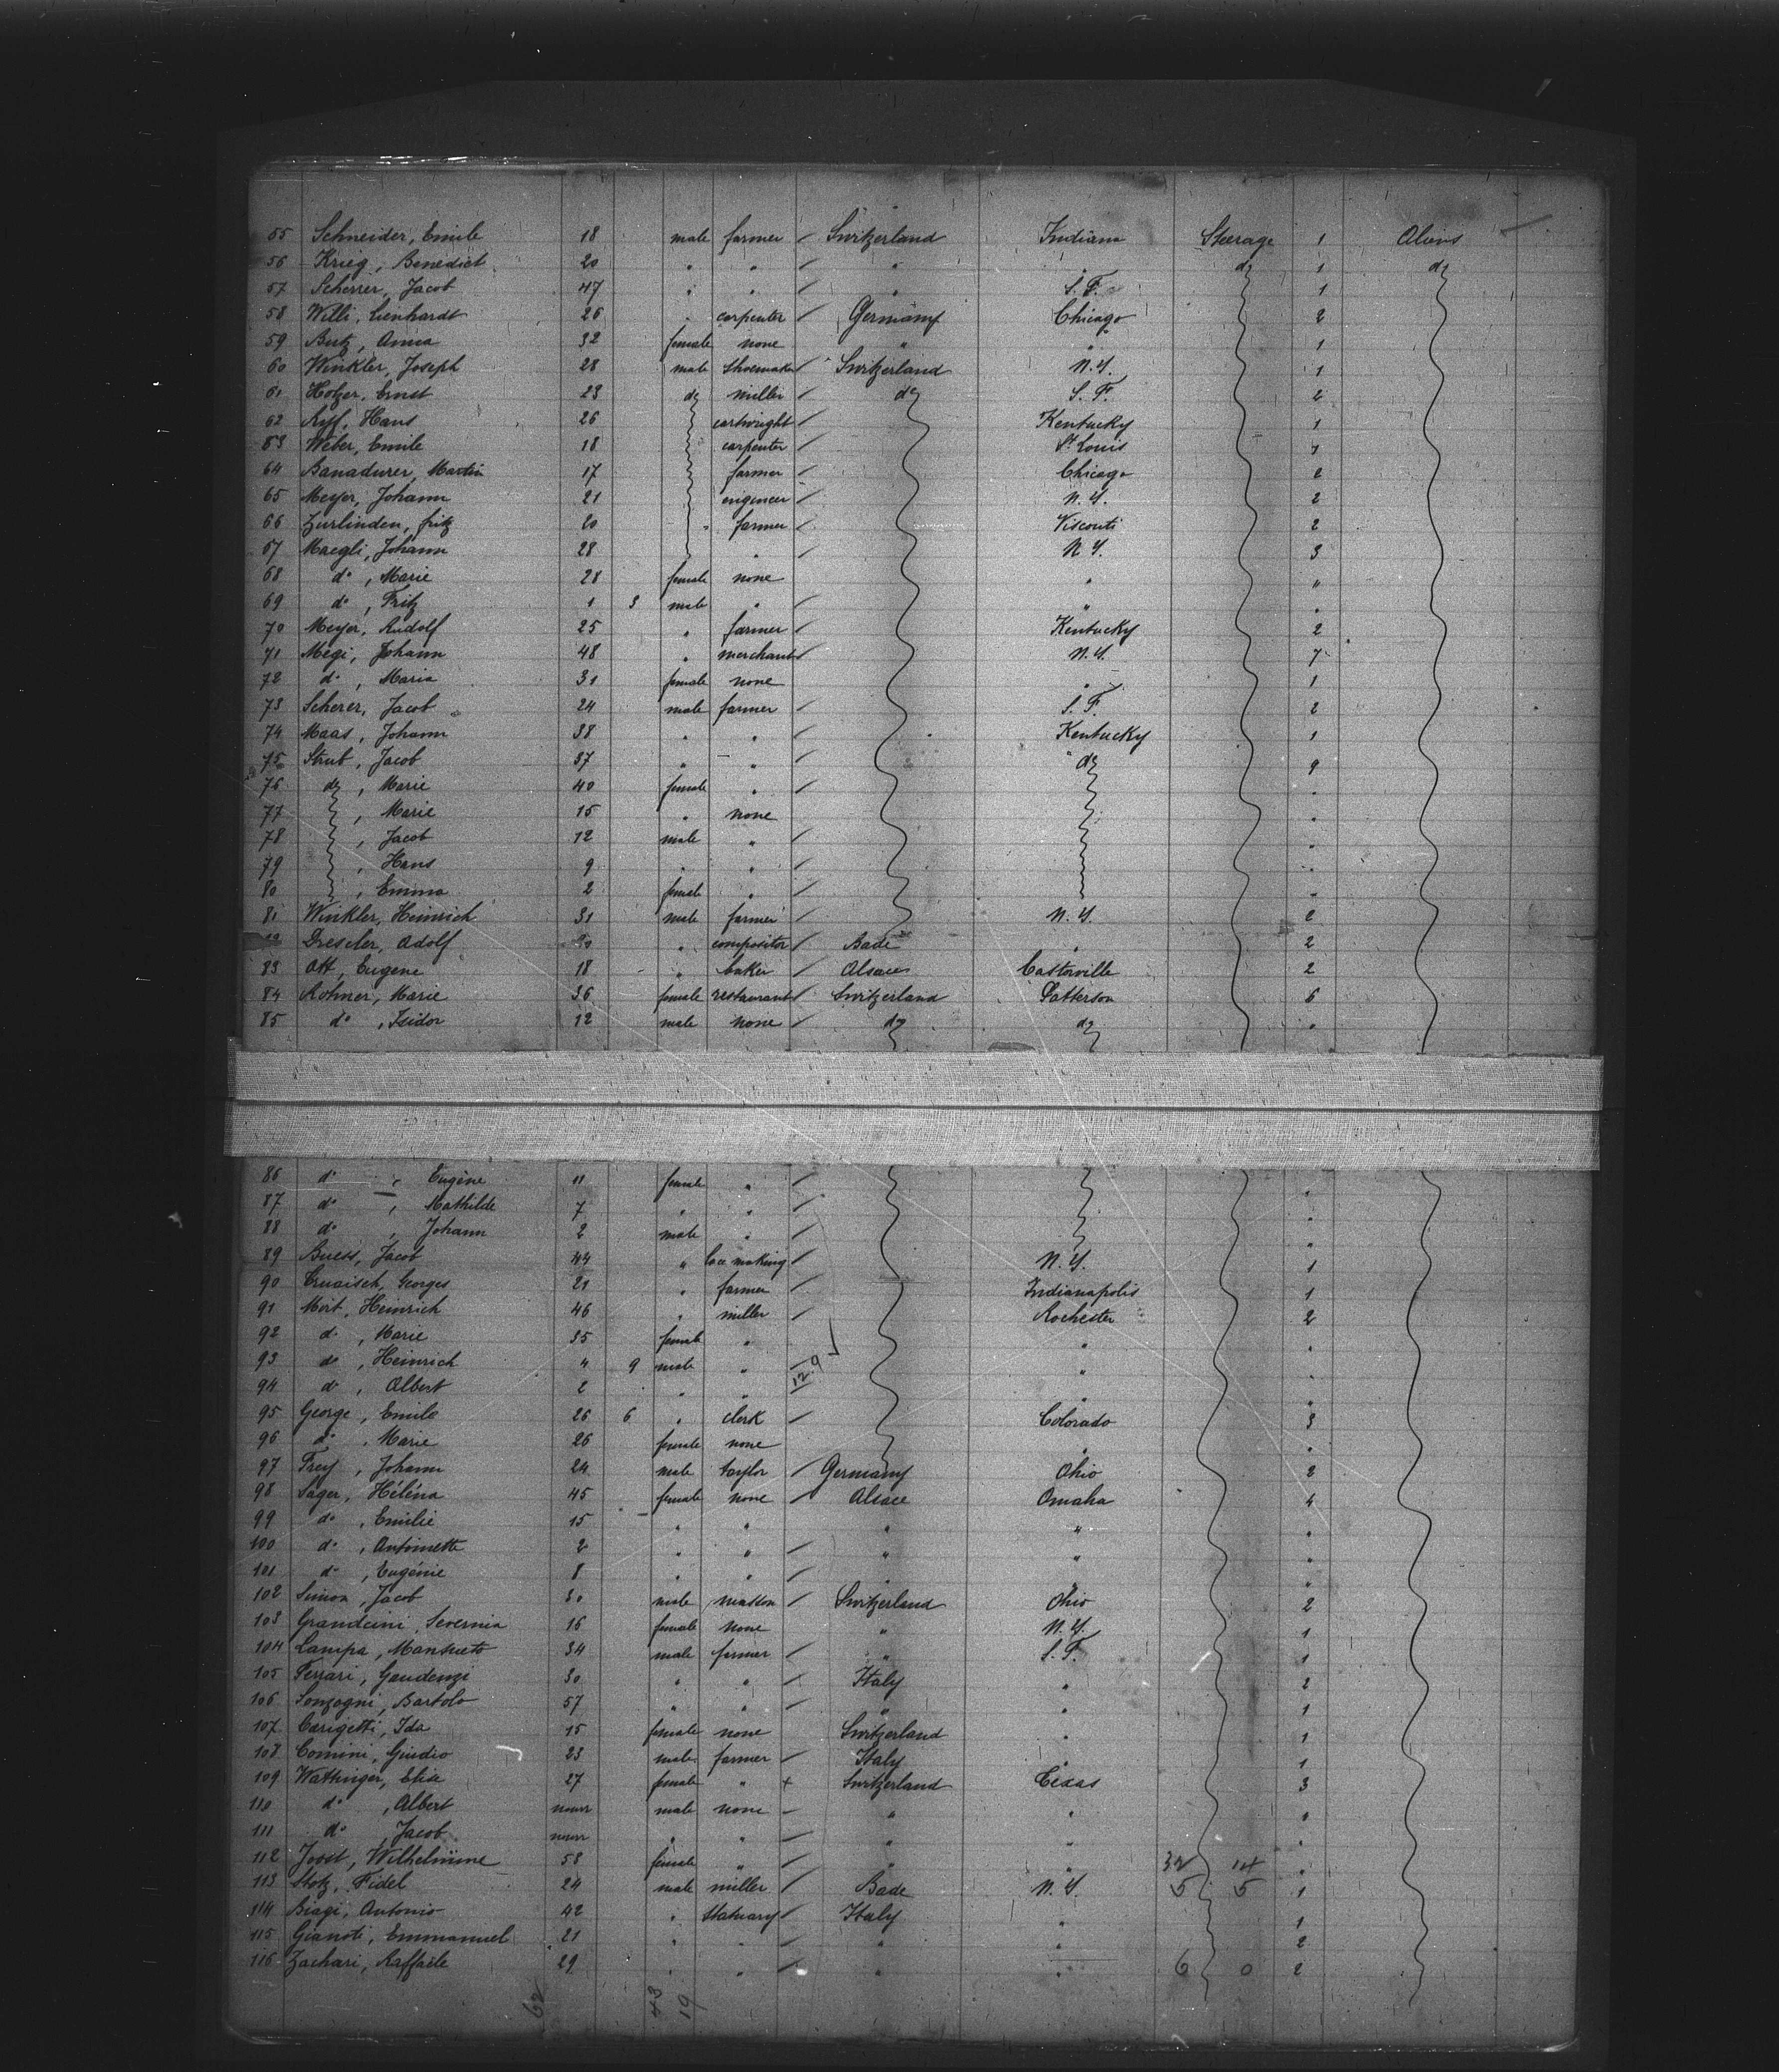 55 Schneider, Emile 18 male farmer / Switzerland Indiana Steerage 1 Aliens
56 Krieg, Benedict 20 " " / " " do 1 do
57 Scherrer, Jacob 47 " " / " S. F. 1
58 Willi, Lienhardt 26 " carpenter / Germany Chicago 2
59 Butz, Anna 32 female none " " 1
60 Winkler, Joseph 28 male shoemaker / Switzerland N.Y. 1
61 Holzer, Ernst 23 do miller / do S. F. 2
62 Ryf, Hans 26 cartwright / Kentucky 1
63 Weber, Emile 18 carpenter / St Louis
64 Banadurer, Martin 17 farmer / Chicago 2
65 Meyer, Johann 21 engineer / N.Y. 2
66 Zurlinden, fritz 20 " farmer / Visconti 2
67 Maegli, Johann 28 " / N Y. 3
68 do, Marie 28 female none " "
69 do, Fritz 1 3 male " / " "
70 Meyer, Rudolf 25 " farmer / Kentucky 2
71 Megi, Johann 48 " merchant / N.Y. 7
72 do, Maria 31 female none " 1
73 Scherer, Jacob 24 male farmer / S. F. 2
74 Maas, Johann 38 " " / Kentucky 1
75 Strub, Jacob 37 " " / do 9
76 do, Marie 40 female " / "
77 , Marie 15 " none "
78 , Jacob 12 male " / "
79 , Hans 9 " " / "
80 , Emma 2 female " / "
81 Winkler, Heinrich 31 male farmer / N.Y. 2
Drescher, Adolf " compositor / Bade " 2
83 Ott, Eugene 18 " baker / Alsace Castorville 2
84 Rohner, Marie 36 female restaurant / Switzerland Patterson 6
85 do, Isidor 12 male none / do do "
86 do, Eugène 11 female " / "
87 do, Mathilde 7 " " / "
88 do, Johann 2 male " / "
89 Buess, Jacob 44 " lace making / N.Y. 1
90 Cruaisch, Georges 21 " farmer / Indianapolis 1
91 Moit, Heinrich 46 " miller / Rochester 2
92 do, Marie 35 female " " "
93 do, Heinrich 4 9 male " 12.9 " "
94 do, Albert 2 " " " "
95 George, Emile 26 6 " clerk / Colorado 3
96 do, Marie 26 female none " "
97 Frey, Johann 24 male taylor / Germany Ohio 2
98 Sager, Héléna 45 female none / Alsace Omaha 4
99 do, Emilie 15 " " " " "
100 do, Antoinette 2 " " / " " "
101 do, Eugénie 8 " " / " "
102 Simon, Jacob 30 male masson / Switzerland Ohio 2
103 Grandcini, Severnia 16 female none " N.Y. 1
104 Lampa, Mansueto 34 male farmer / " S. F. 1
105 Ferrari, Gaudenzi 30 " " / Italy " 2
106 Sonzogni, Bartolo 57 " " / " " 1
107 Carigetti, Ida 15 female none Switzerland " 1
108 Comini, Giudio 23 male farmer / Italy 1
109 Wattinger, Elise 27 female " + Switzerland Texas 3
110 do, Albert male none " " "
111 do, Jacob " " / " " "
112 Joost, Wilhelmine 58 female " / " " 32 14 "
113 Stotz, Fidel 24 male miller / Bade N.Y. 5 5 1
114 Biagi, Antonio 42 " statuary / Italy 1
115 Gianoti, Emmanuel 21 " " / " " 2
116 Zachari, Raffaële 29 " " / " " 6 0 2
62 43 19